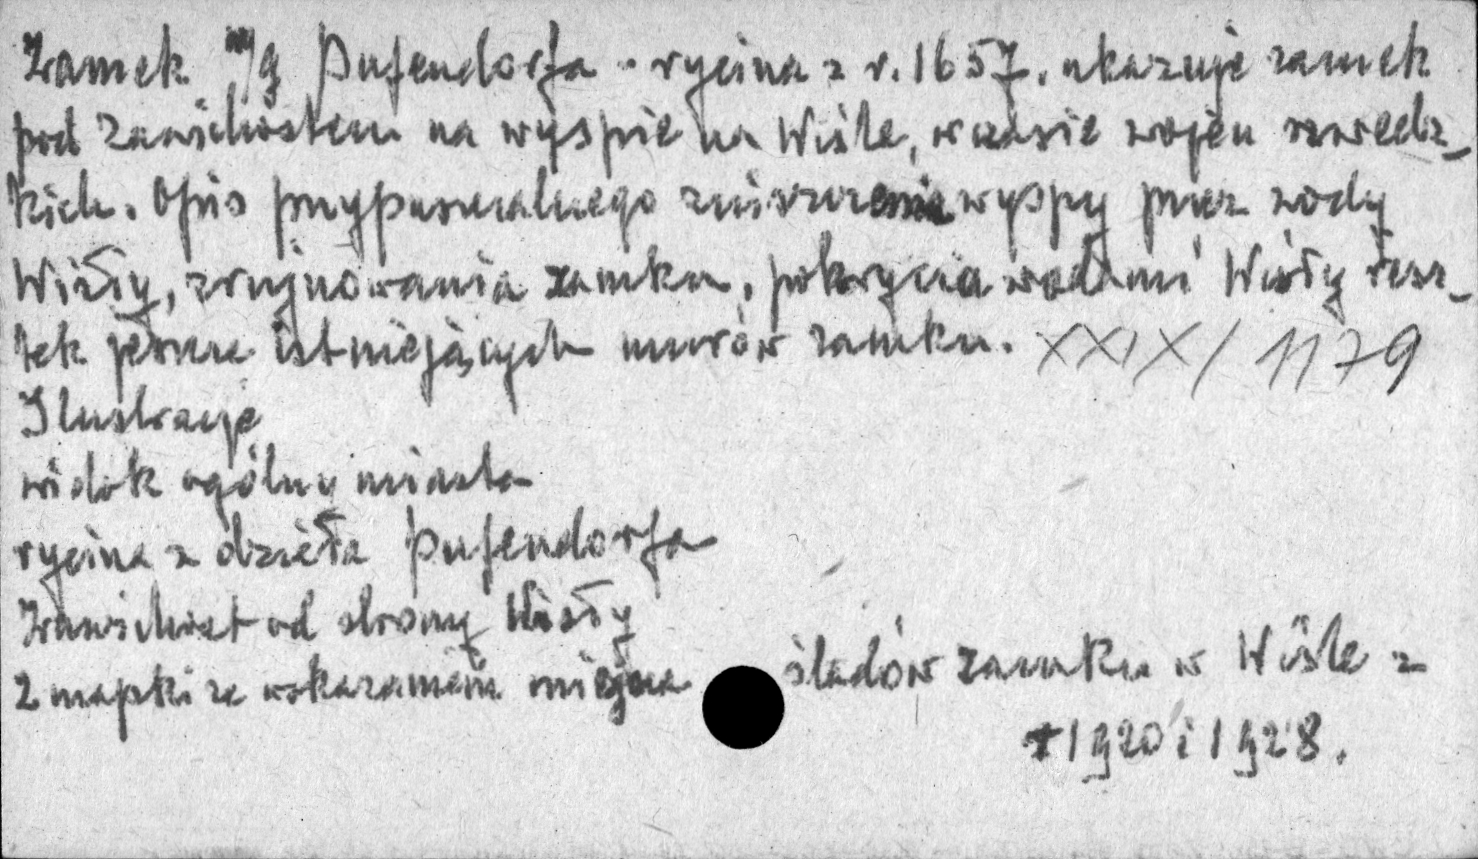 Zamek w/g Pufendorfa - rycina z r. 1657. ukazuje zamek
pod Zawichostem na wyspie na Wiśle, w czasie wojen szwedz-
kich. Opis przypuszczalnego zniszczenia wyspy przez wody
Wisły, zrujnowania zamku, pokrycia wodami Wisły resz-
tek jeszcze istniejących murów zamku. XXIX/1179
Ilustracje
widok ogólny miasta
rycina z dzieła Pufendorfa
Zawichost od strony Wisły
2 mapki ze wskazaniem miejsca śladów zamku w Wiśle z
r 1920 i 1928.